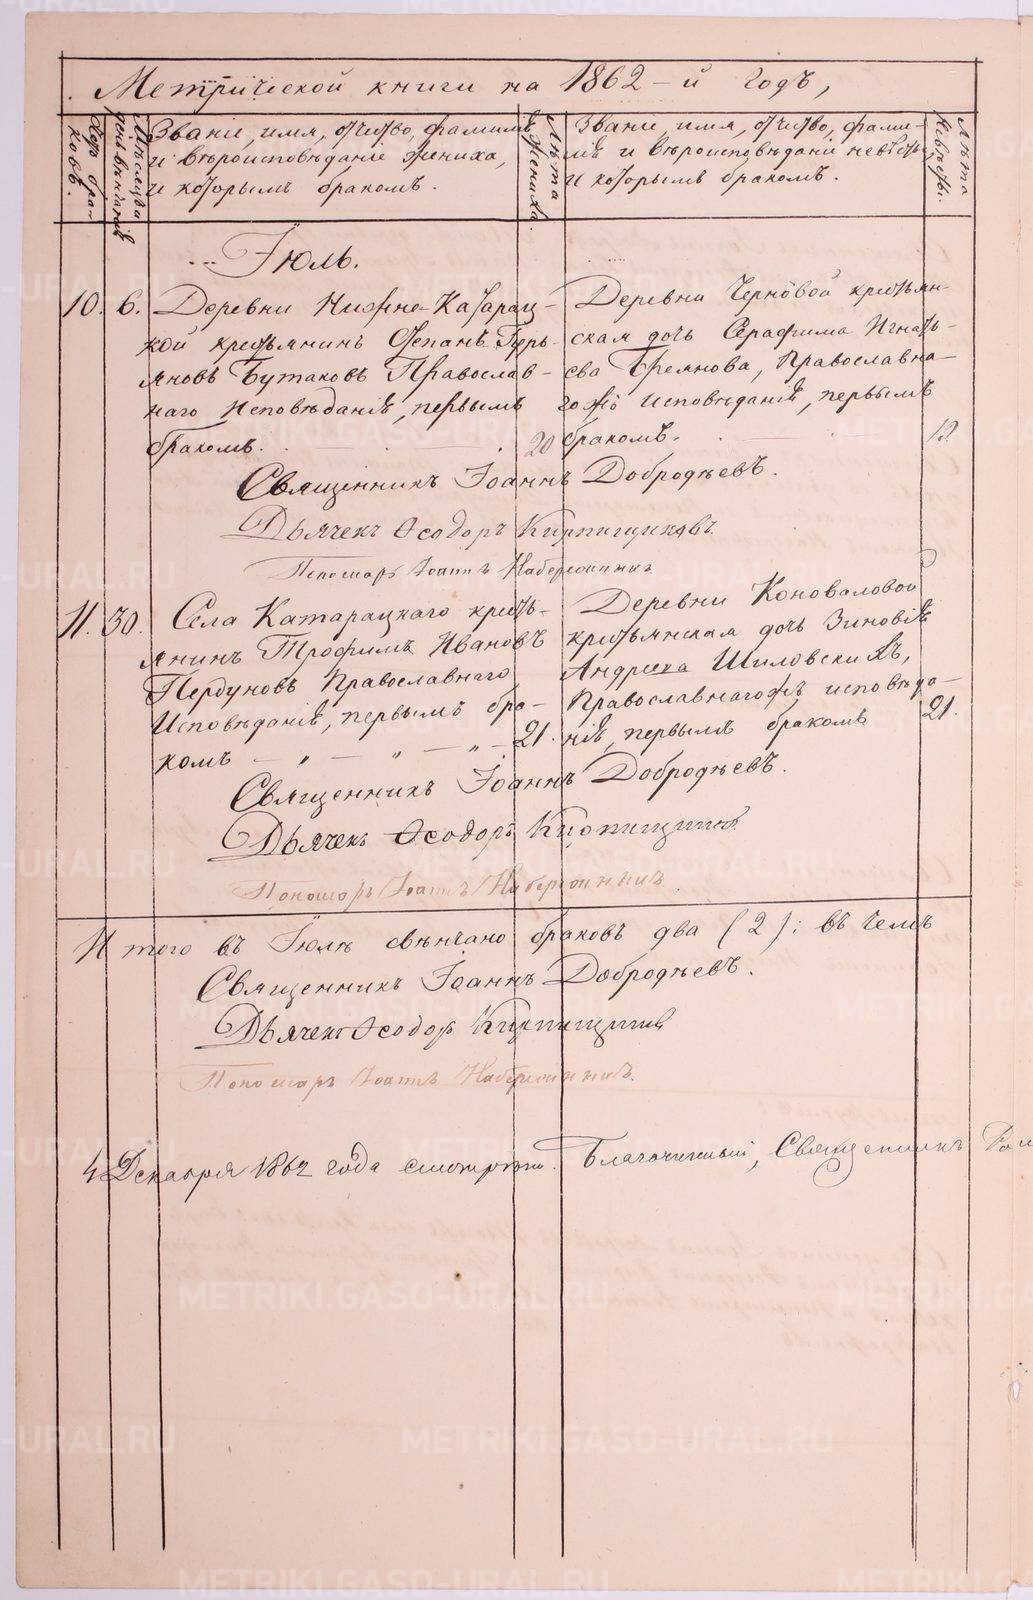 Метрической книги на 1862-й годъ,
Счетъ браковъ.
Мѣсяцъ и день вѣнчанія
Званіе, имя, отчество, фамилія и вѣроисповѣданіе жениха,
и которымъ бракомъ.
Лѣта жениха.
Званіе, имя, отчество, фами-
лія и вѣроисповѣданіе невѣсты
и которымъ бракомъ.
Лѣта невѣсты.
Іюль.
10. 6. Деревни Нижне-Катарац-
кой крестьянинъ Степанъ Гурь-
яновъ Бутаковъ Православ-
наго Исповѣданія, первымъ
бракомъ. 20
Деревни Черновой крестьян-
ская дочь Серафима Игнать-
ева Бреянова, Православна-
го исповѣданія, первымъ
бракомъ. 19.
Священникъ Іоаннъ Добродѣевъ.
Дьячекъ Ѳеодоръ Кирпищиковъ.
Пономарь Іоаннъ Набережнинъ
11. 30. Села Катарацкаго кресть-
янинъ Трофимъ Ивановъ
Пердуновъ Православнаго
Исповѣданія, первымъ бра-
комъ — „ — „ — „ — 21.
Деревни Коноваловой
крестьянская дочь Зиновія
Андреева Шиловскихъ,
Православнагожъ исповѣда-
нія, первымъ бракомъ 21.
Священникъ Іоаннъ Добродѣевъ.
Дьячекъ Ѳеодоръ Кирпищиковъ
Пономарь Іоаннъ Набережнинъ
Итого въ Іюлѣ свѣнчано браковъ два (2); въ чемъ
Священникъ Іоаннъ Добродѣевъ.
Дьячекъ Ѳеодоръ Кирпищиковъ
Пономарь Іоаннъ Набережнинъ.
4 Декабря 1862 года смотрѣно. Благочинный, Священникъ
METRIKI.GASO-URAL.RU